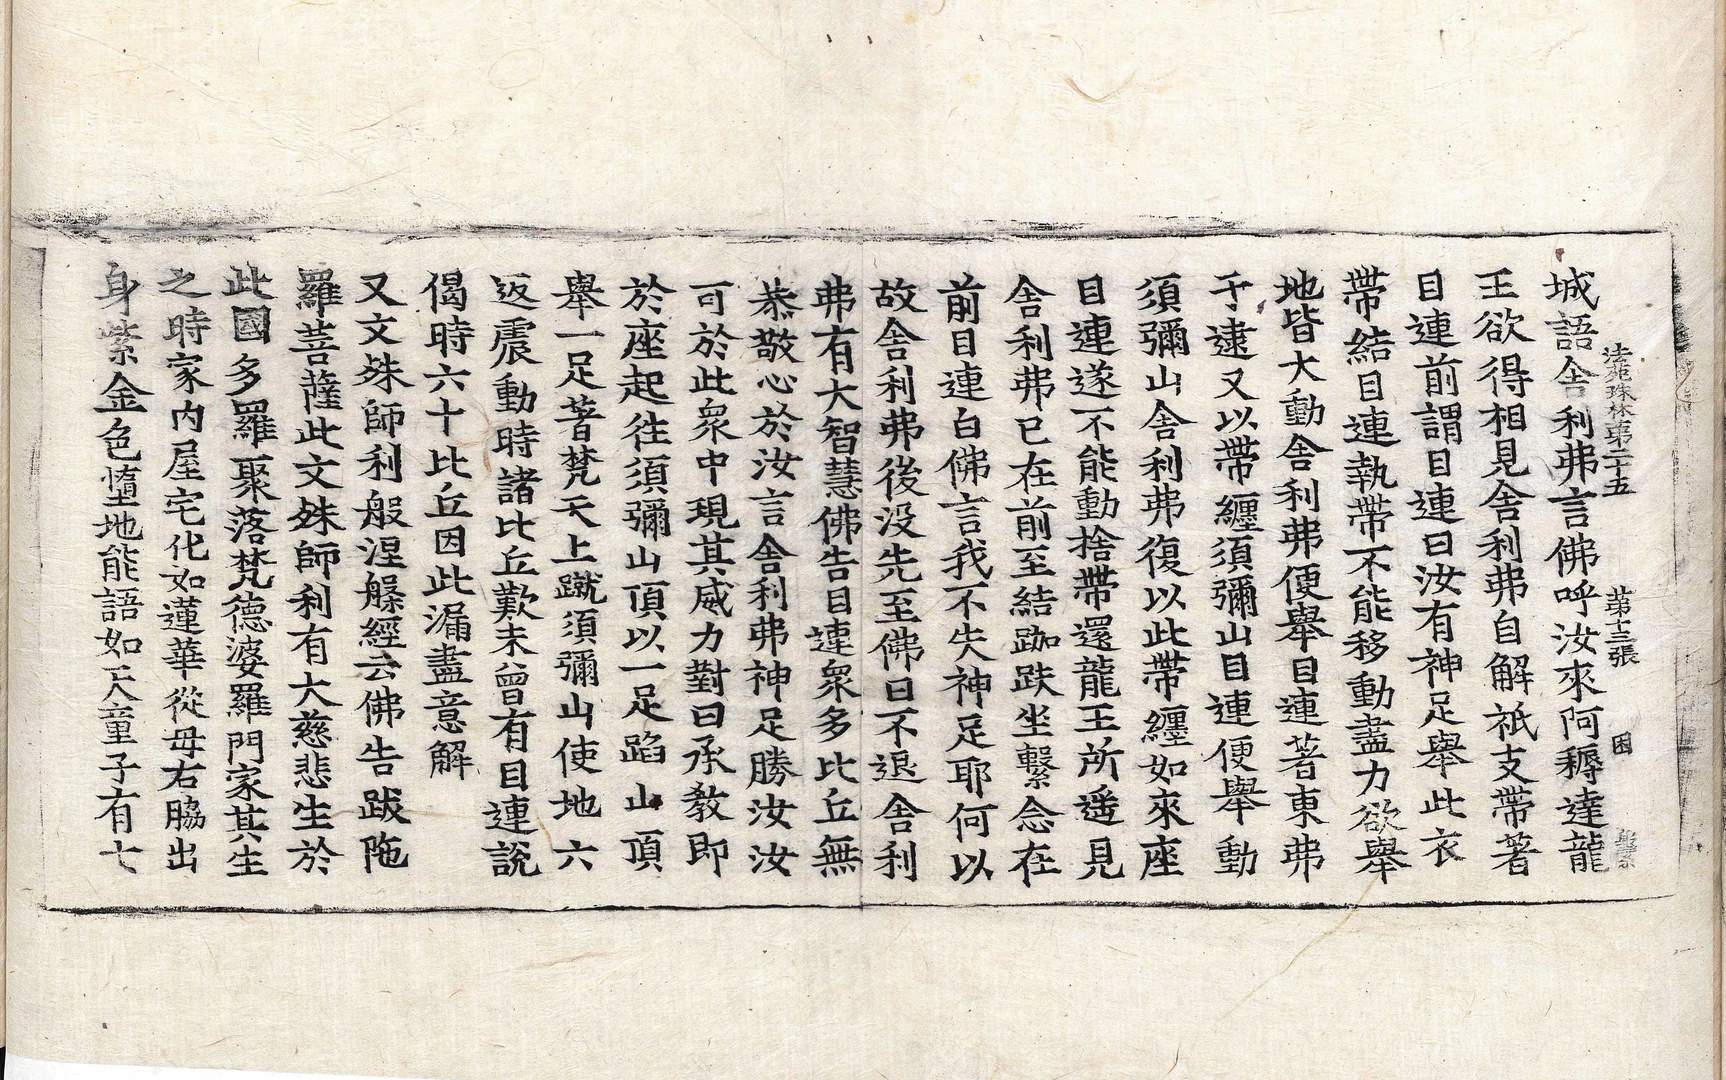 法苑珠林第二十五 第十三張 困
城語舍利弗言佛呼汝來阿耨達龍
王欲得相見舍利弗自解祇支帶著
目連前謂目連曰汝有神足舉此衣
帶結目連執帶不能移動盡力欲舉
地皆大動舍利弗便舉目連著東弗
于逮又以帶纏須彌山目連便舉動
須彌山舍利弗復以此帶纏如來座
目連遂不能動捨帶還龍王所遥見
舍利弗已在前至結跏趺坐繫念在
前目連白佛言我不失神足耶何以
故舍利弗後没先至佛曰不退舍利
弗有大智慧佛告目連衆多比丘無
恭敬心於汝言舍利弗神足勝汝汝
可於此衆中現其威力對曰承教即
於座起往須彌山頂以一足蹈山頂
舉一足著梵天上蹴須彌山使地六
返震動時諸比丘歎未曾有目連說
偈時六十比丘因此漏盡意解
又文殊師利般涅槃經云佛告跋陁
羅菩薩此文殊師利有大慈悲生於
此國多羅聚落梵德婆羅門家其生
之時家內屋宅化如蓮華從母右脇出
身紫金色墮地能語如天童子有七